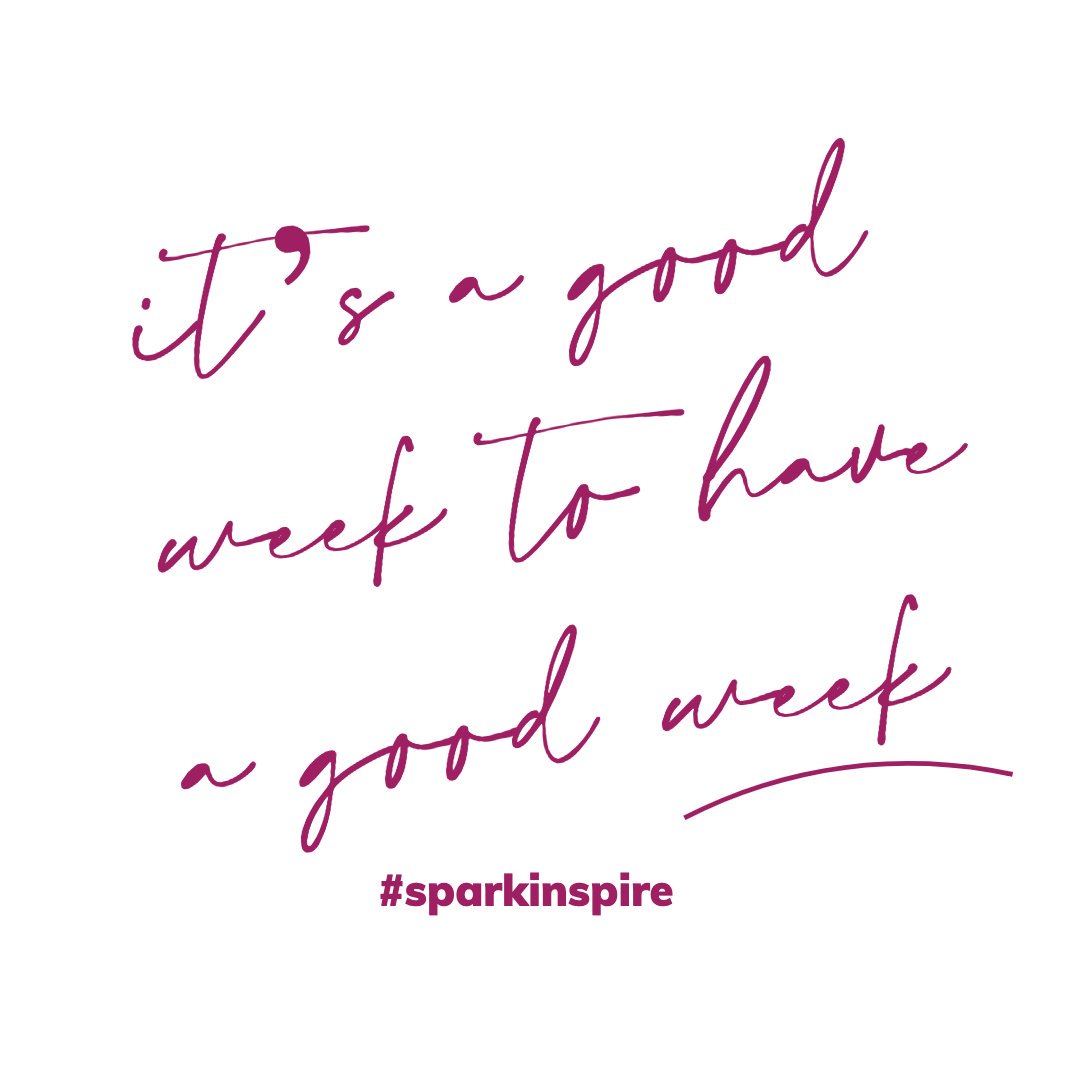 it's a good
week to have
a good week
#sparkinspire